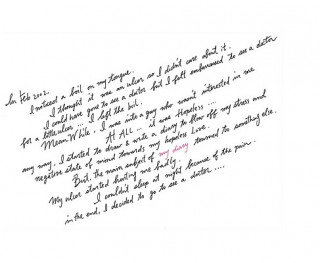 In Feb 2002.
I noticed a boil on my tongue.
I thought it was an ulcer so I didn't care about it.
I could have gone to see a doctor but I felt embarrassed to see a doctor
for a little ulcer... I left the boil.
Mean While, I was into a guy who wasn't interested in me
At ALL... it was Hopeless....
any way, I started to draw & write a diary to blow off my stress and
negative state of mind towards my hopeless Love.
But, the main subject of my diary turned to something else.
My ulcer started hurting me badly.
I couldn't sleep at night because of the pain.
in the end, I decided to go to see a doctor....